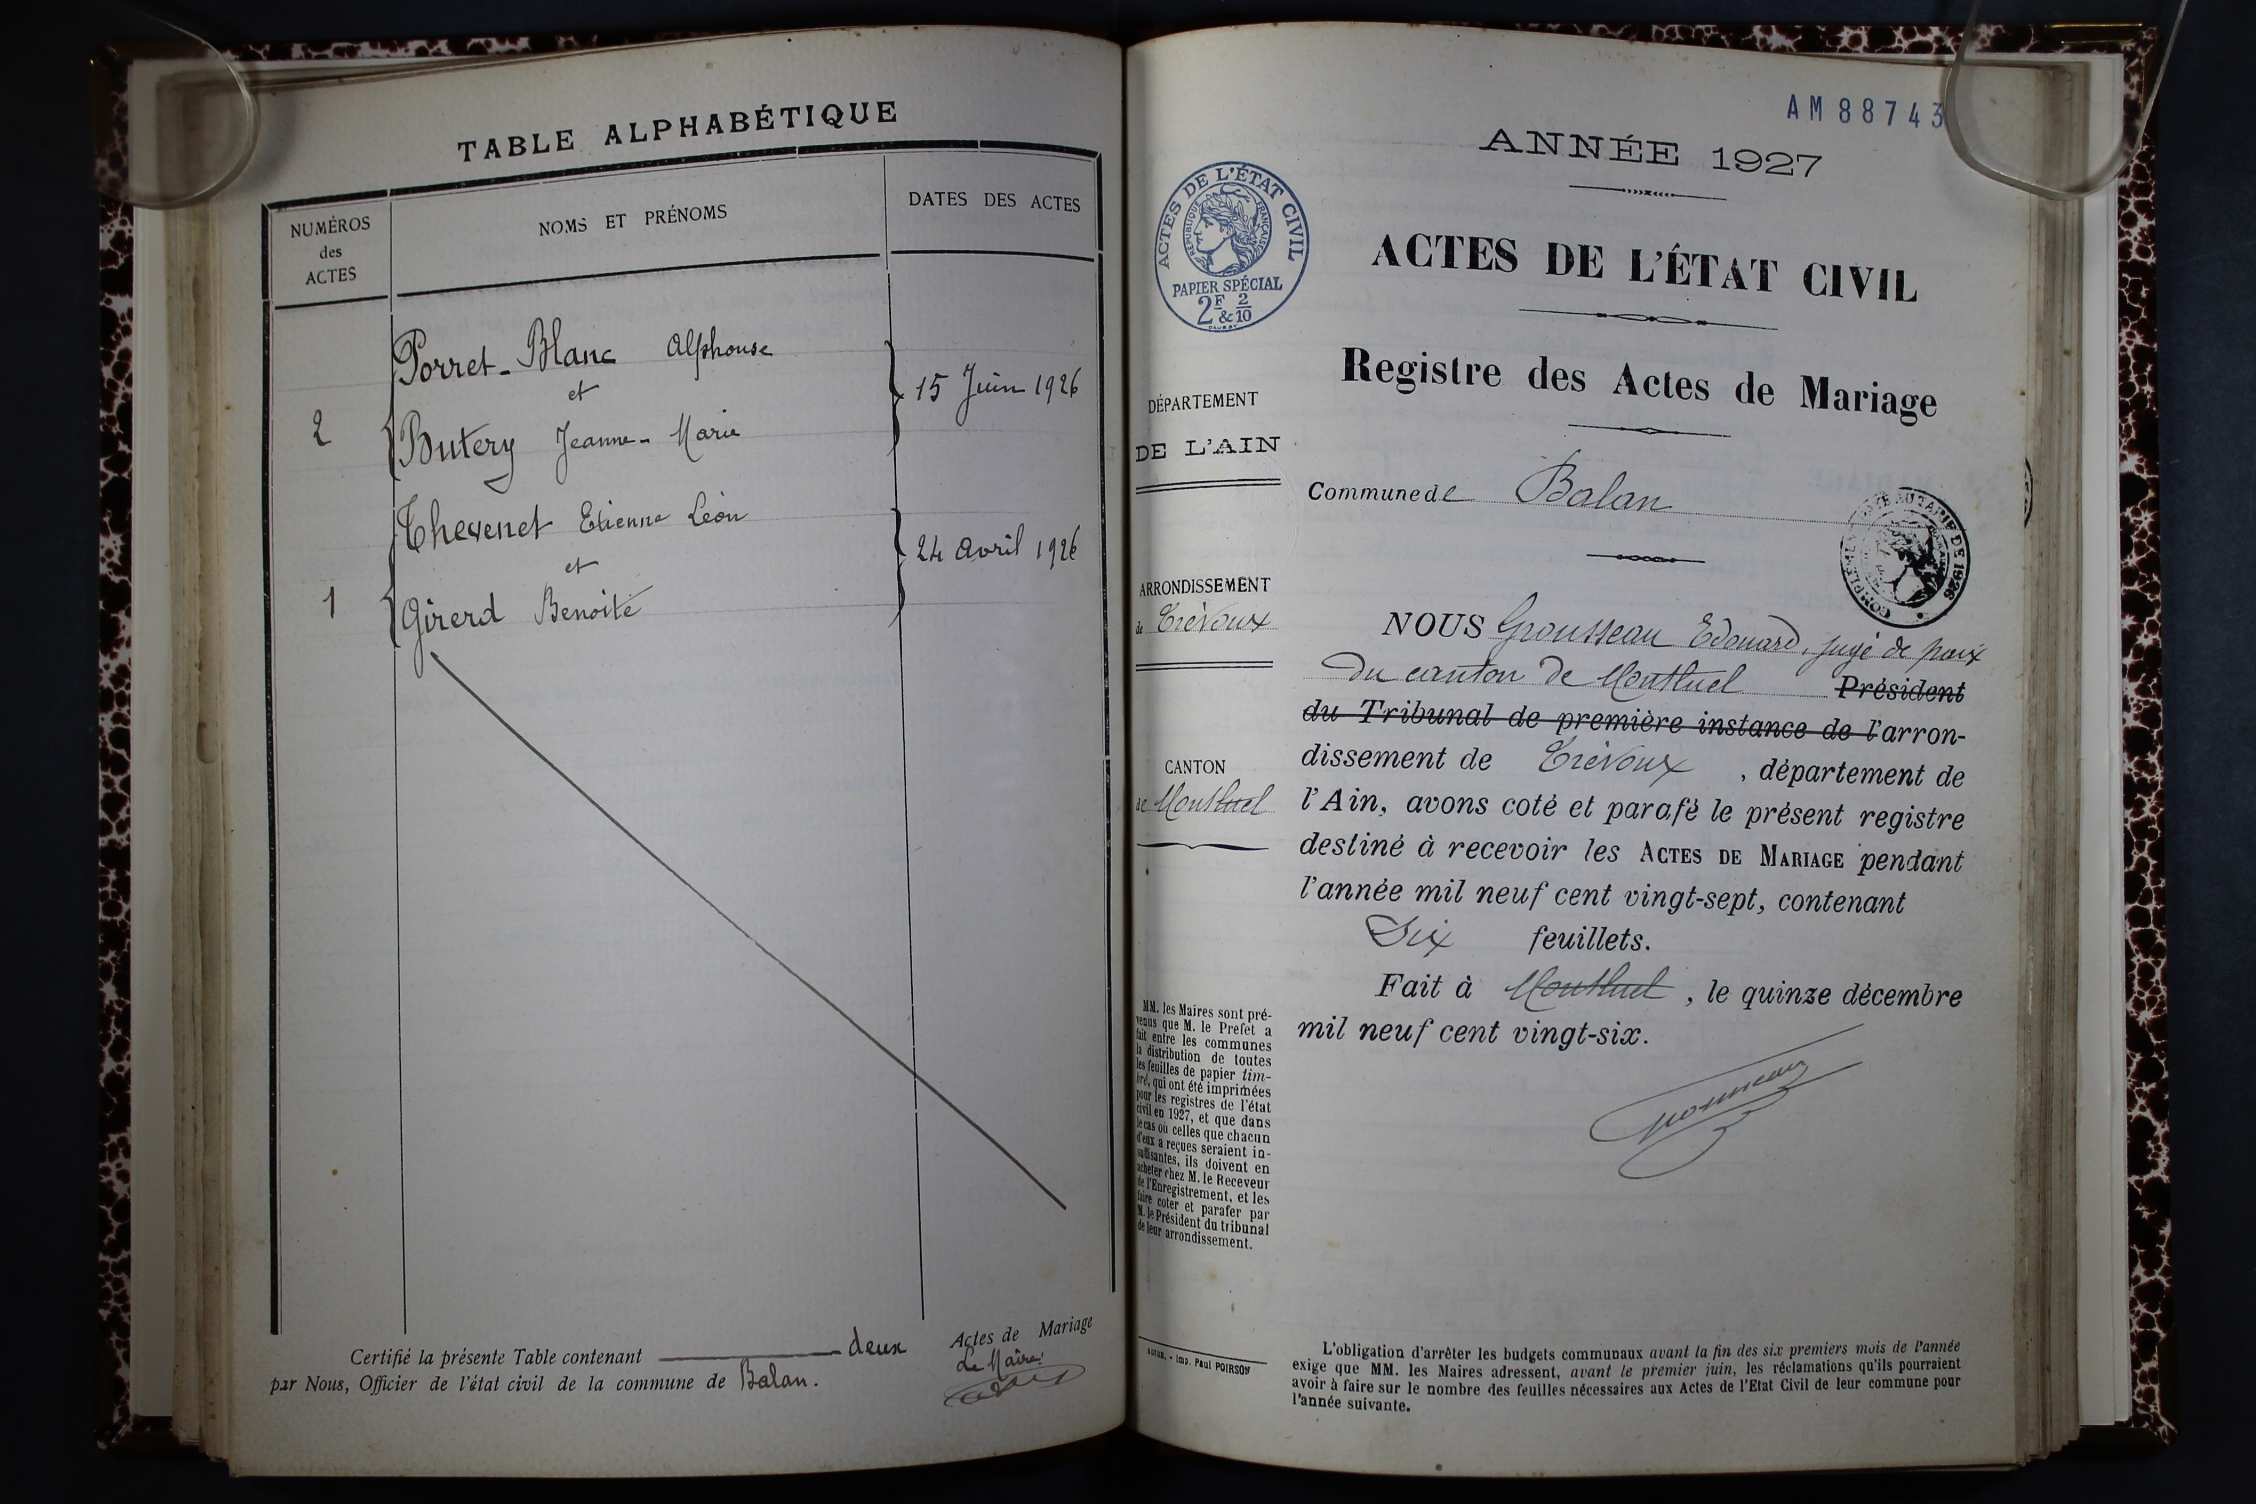 TABLE ALPHABÉTIQUE
NUMÉROS
des
ACTES
NOMS ET PRÉNOMS
DATES DES ACTES
Porret-Blanc Alphonse
et
2
Butery Jeanne-Marie
15 Juin 1926
Thevenet Etienne Léon
et
1
Girerd Benoite
24 avril 1926
Certifié la présente Table contenant deux Actes de Mariage
par Nous, Officier de l'état civil de la commune de Balan.
Le Maire
AM 88743
ANNÉE 1927
ACTES DE L'ÉTAT CIVIL
RÉPUBLIQUE FRANÇAISE
PAPIER SPÉCIAL
2F & 2/10
ACTES DE L'ÉTAT CIVIL
Registre des Actes de Mariage
DÉPARTEMENT
DE L'AIN
Commune de Balan
ARRONDISSEMENT
de Trévoux
CANTON
de Montluel
NOUS Grousseau Edouard, juge de paix
du canton de Montluel Président
du Tribunal de première instance de l'arron-
dissement de Trévoux, département de
l'Ain, avons coté et parafé le présent registre
destiné à recevoir les ACTES DE MARIAGE pendant
l'année mil neuf cent vingt-sept, contenant
Six feuillets.
Fait à Montluel, le quinze décembre
mil neuf cent vingt-six.
Grousseau
MM. les Maires sont pré-
venus que M. le Prefet a
fait entre les communes
la distribution de toutes
les feuilles de papier tim-
bré, qui ont été imprimées
pour les registres de l'état
civil en 1927, et que dans
le cas où celles que chacun
d'eux a reçues seraient in-
suffisantes, ils doivent en
acheter chez M. le Receveur
de l'Enregistrement, et les
faire coter et parafer par
M. le Président du tribunal
de leur arrondissement.
Imp. Paul POIRSON
L'obligation d'arrêter les budgets communaux avant la fin des six premiers mois de l'année
exige que MM. les Maires adressent, avant le premier juin, les réclamations qu'ils pourraient
avoir à faire sur le nombre des feuilles nécessaires aux Actes de l'Etat Civil de leur commune pour
l'année suivante.